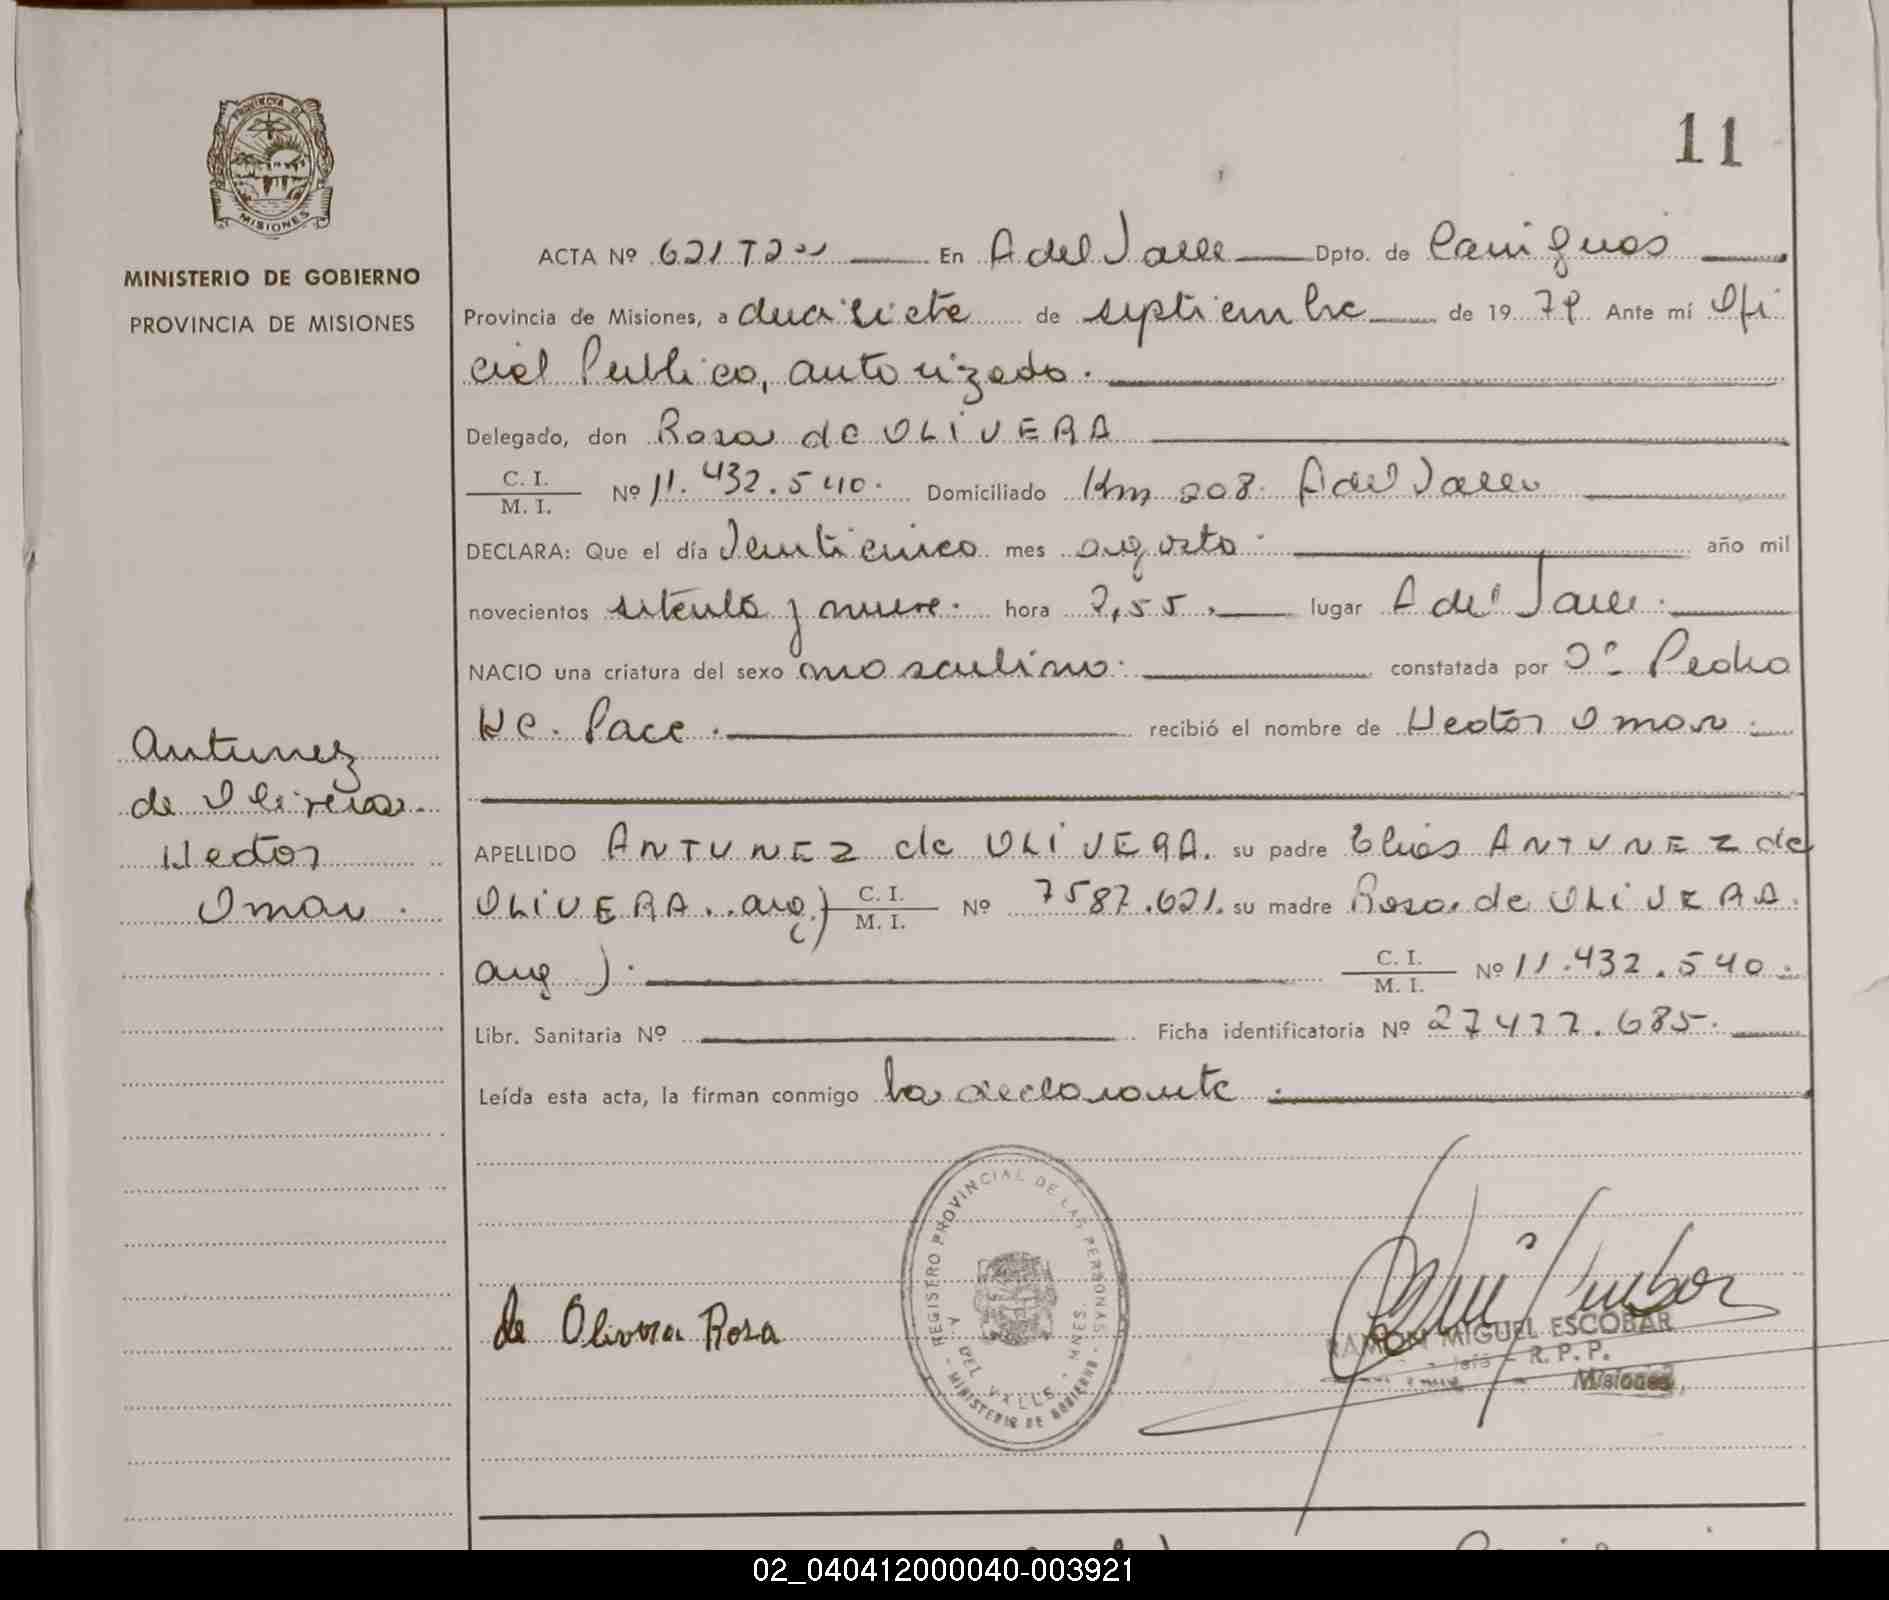 PROVINCIA DE
MISIONES
MINISTERIO DE GOBIERNO
PROVINCIA DE MISIONES
11
ACTA Nº 621 T2º En A del Valle Dpto. de Cainguas
Provincia de Misiones, a diecisiete de septiembre de 1979 Ante mí Ofi
cial Publico, autorizado.
Delegado, don Rosa de OLIVERA
C. I.
M. I. Nº 11.432.540. Domiciliado Km 208. A del Valle
DECLARA: Que el día Veinticinco mes agosto. año mil
novecientos setenta y nueve. hora 7,55. lugar A del Valle.
NACIO una criatura del sexo masculino. constatada por Dº Pedro
Hc. Pace. recibió el nombre de Hector Omar.
Antunez
de Olivera
Hector
Omar.
APELLIDO ANTUNEZ de OLIVERA. su padre Elias ANTUNEZ de
OLIVERA. arg.) C. I. M. I. Nº 7587.621. su madre Rosa de OLIVERA
arg ). C. I. M. I. Nº 11.432.540.
Libr. Sanitaria Nº Ficha identificatoria Nº 27477.685.
Leída esta acta, la firman conmigo la declarante.
REGISTRO PROVINCIAL DE LAS PERSONAS
A. DEL VALLE - MNES.
MINISTERIO DE GOBIERNO
de Olivera Rosa
RAMON MIGUEL ESCOBAR
R. P. P.
Misiones
02_040412000040-003921